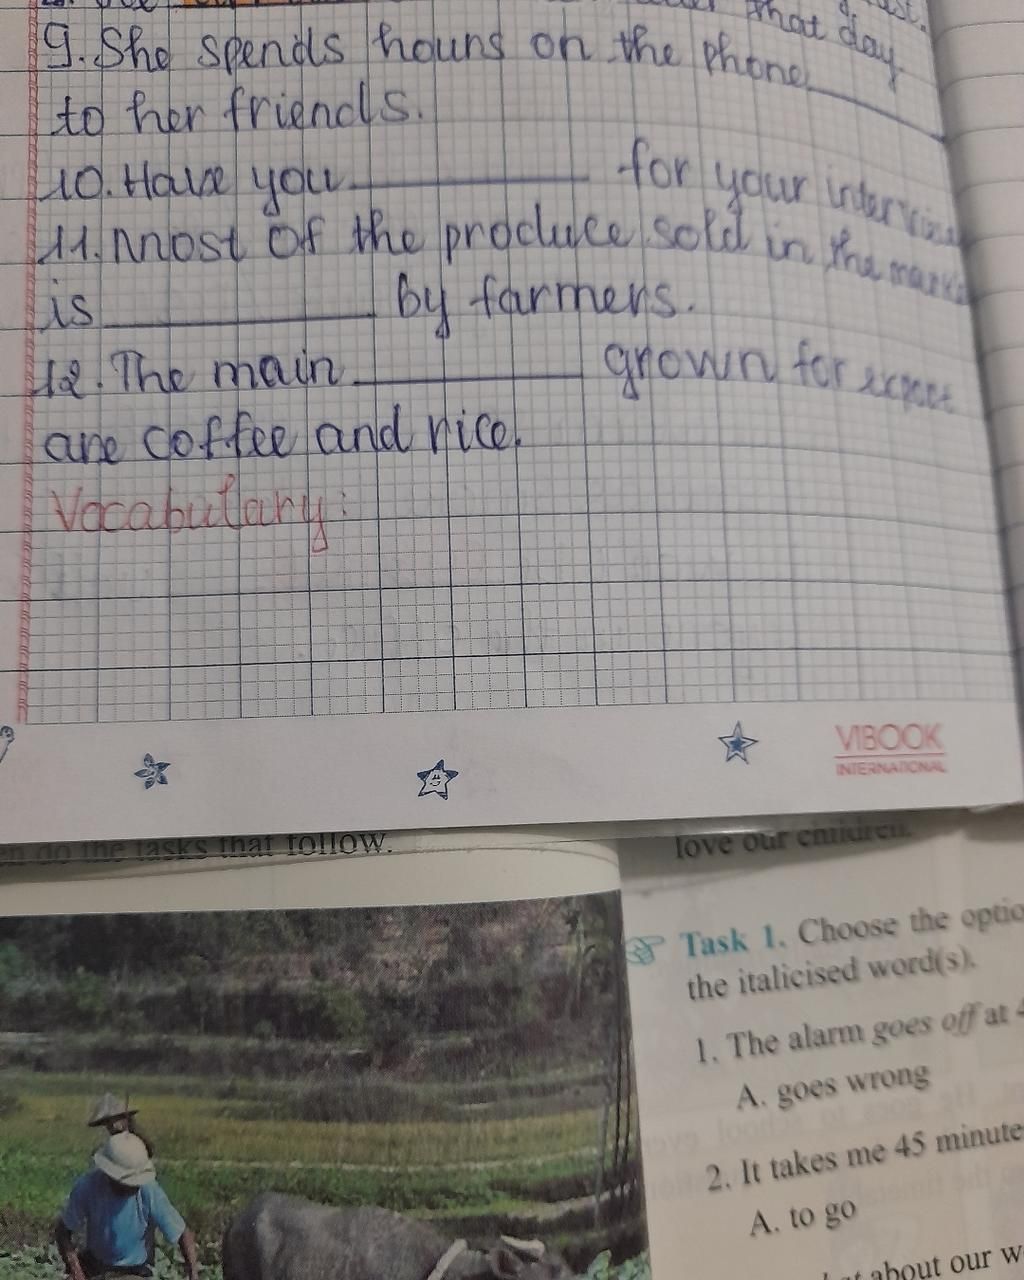 that day
9. She spends hours on the phone
to her friends.
10. Have you for your interview
11. Most of the produce sold in the
is by farmers.
12. The main grown for export
are coffee and rice.
Vocabulary:
VIBOOK
INTERNATIONAL
do the tasks that follow.
love our children.
Task 1. Choose the
the italicised word(s).
1. The alarm goes off at
A. goes wrong
2. It takes me 45
A. to go
about our